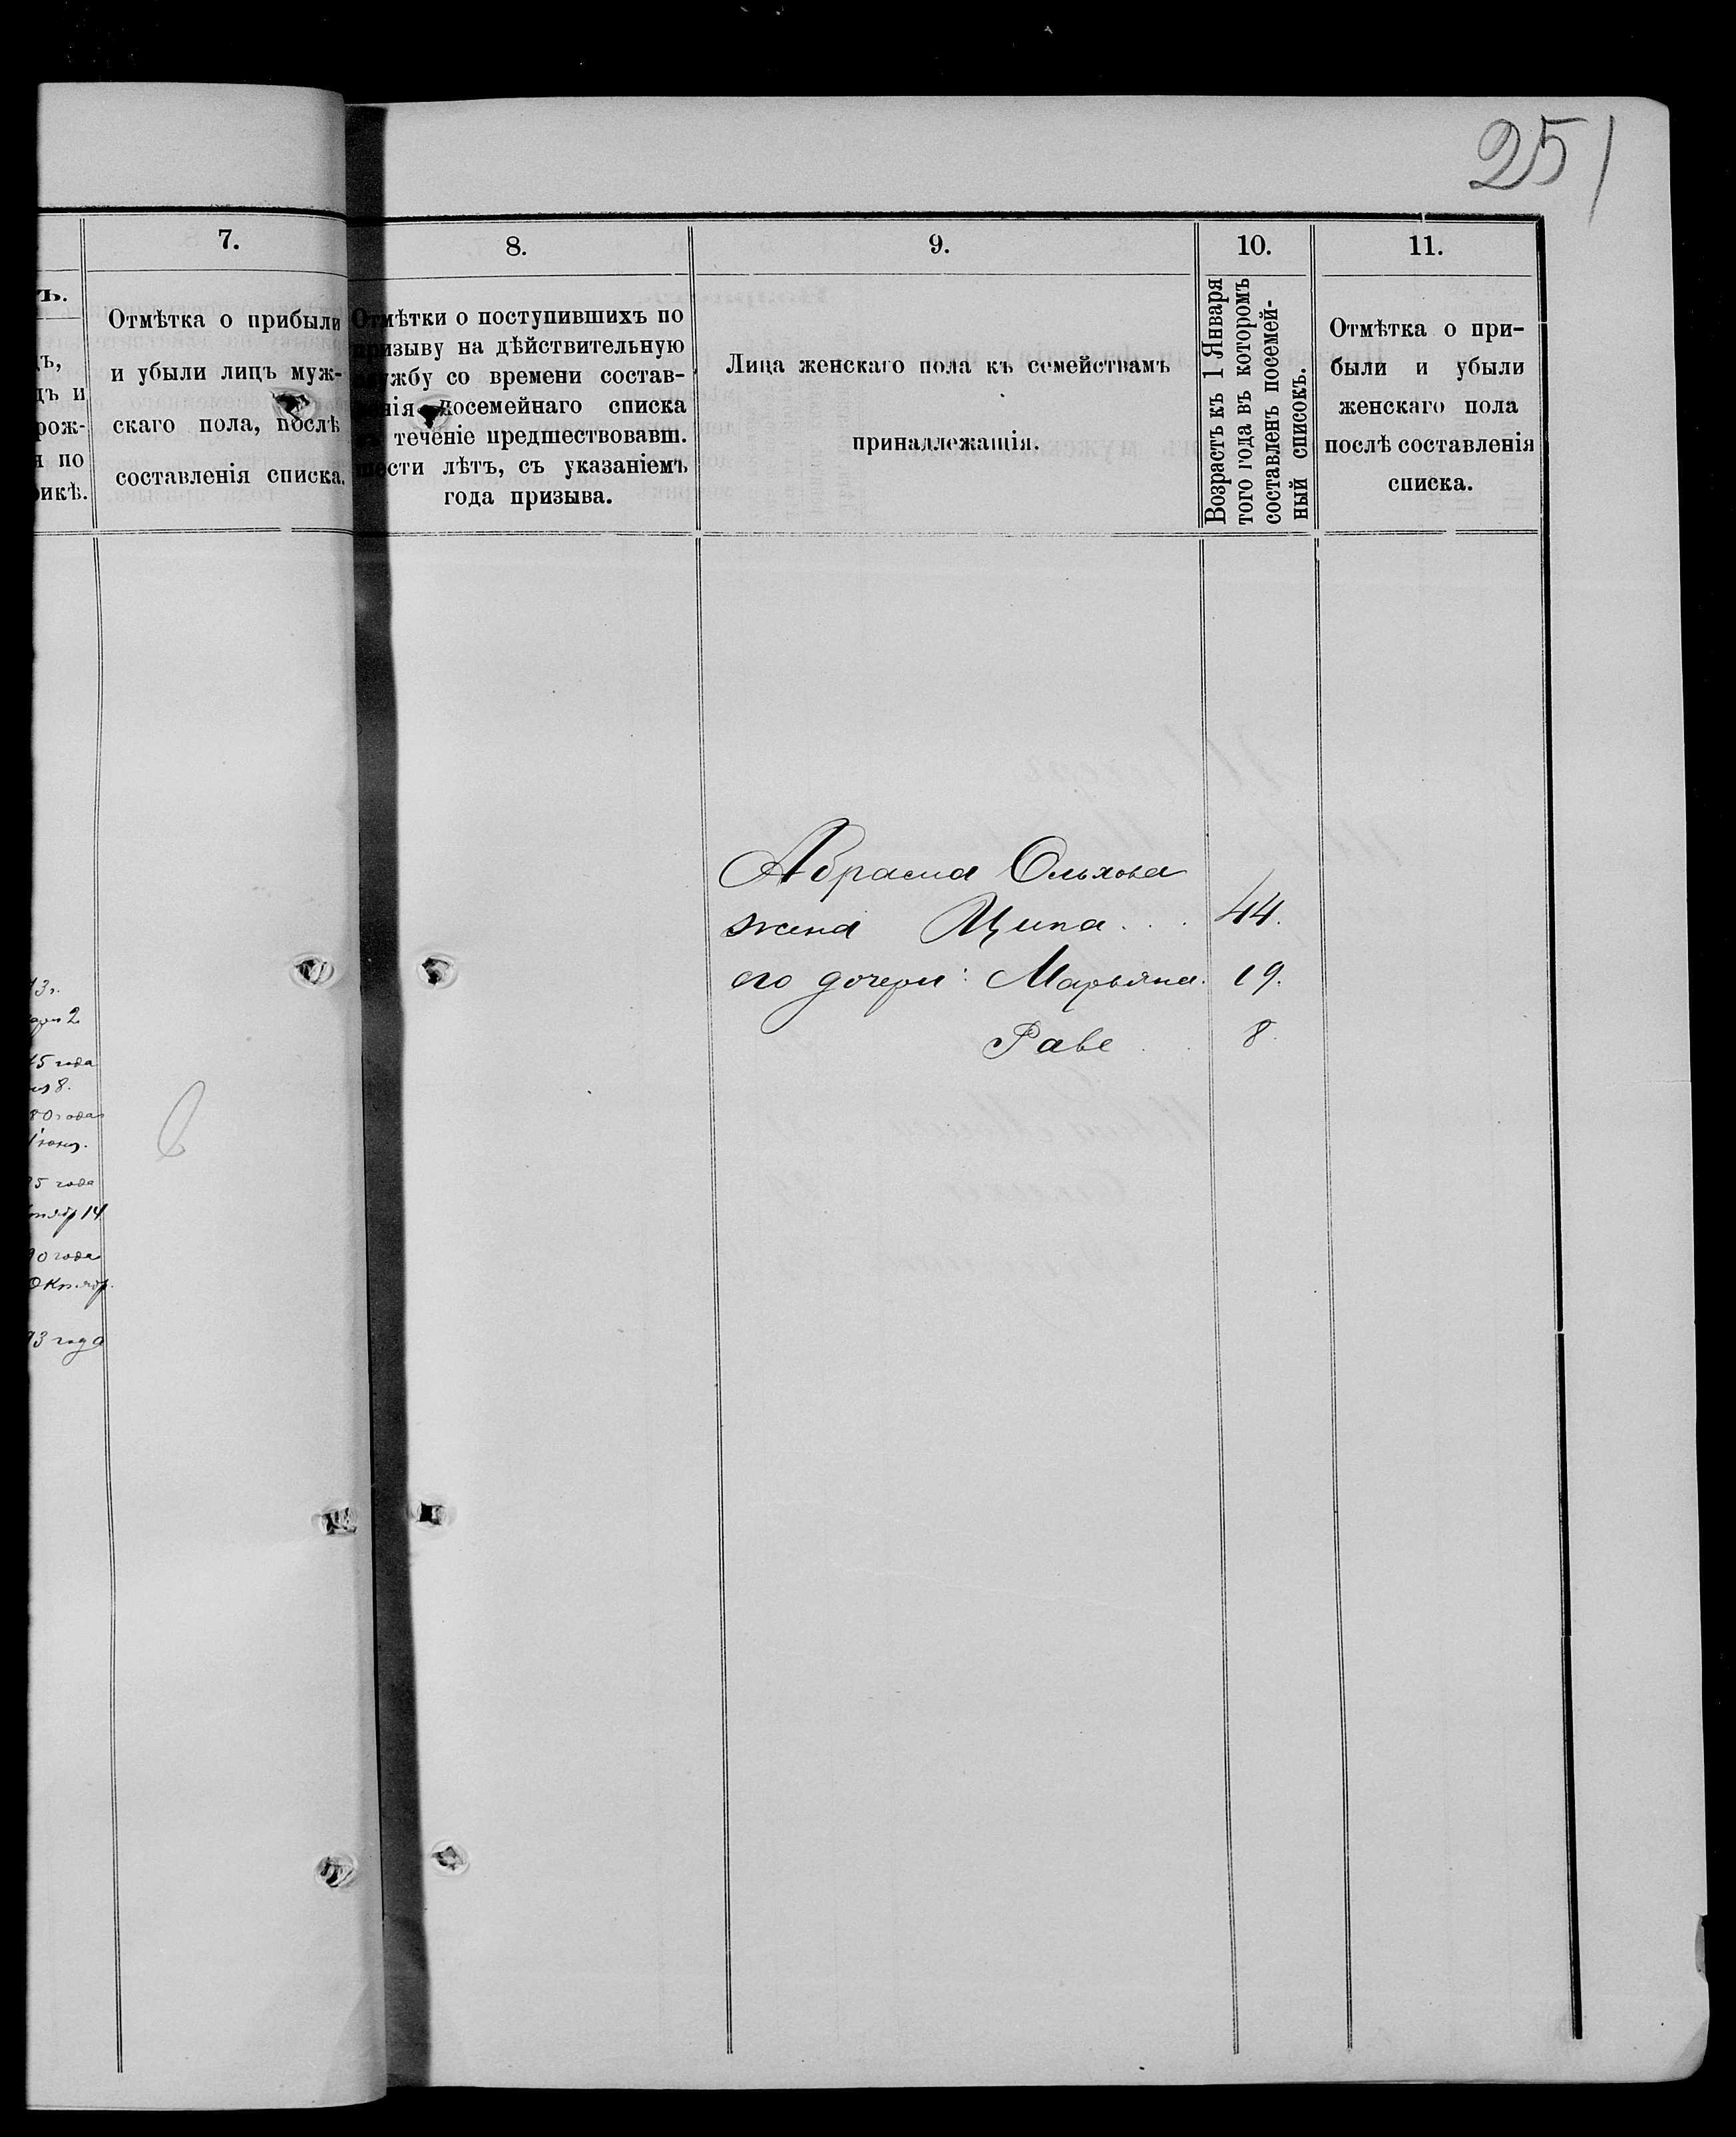 251
7.
8.
9.
10.
11.
ъ.
ъ,
дъ и
рож-
я по
рикѣ.
Отмѣтка о прибыли
и убыли лицъ муж-
скаго пола, послѣ
составленія списка.
Отмѣтки о поступившихъ по
призыву на дѣйствительную
службу со времени состав-
ленія посемейнаго списка
въ теченіе предшествовавш.
шести лѣтъ, съ указаніемъ
года призыва.
Лица женскаго пола къ семействамъ
принадлежащія.
Возрастъ къ 1 Января
того года въ которомъ
составленъ посемей-
ный списокъ.
Отмѣтка о при-
были и убыли
женскаго пола
послѣ составленія
списка.
Абрама Ольхова
жена Ципа . . . 44.
его дочери: Марьяна. 19.
Раве . . 8.
3г.
2
5 года
8.
80 года
Іюня.
5 года
14
90 года
Октябр.
93 года